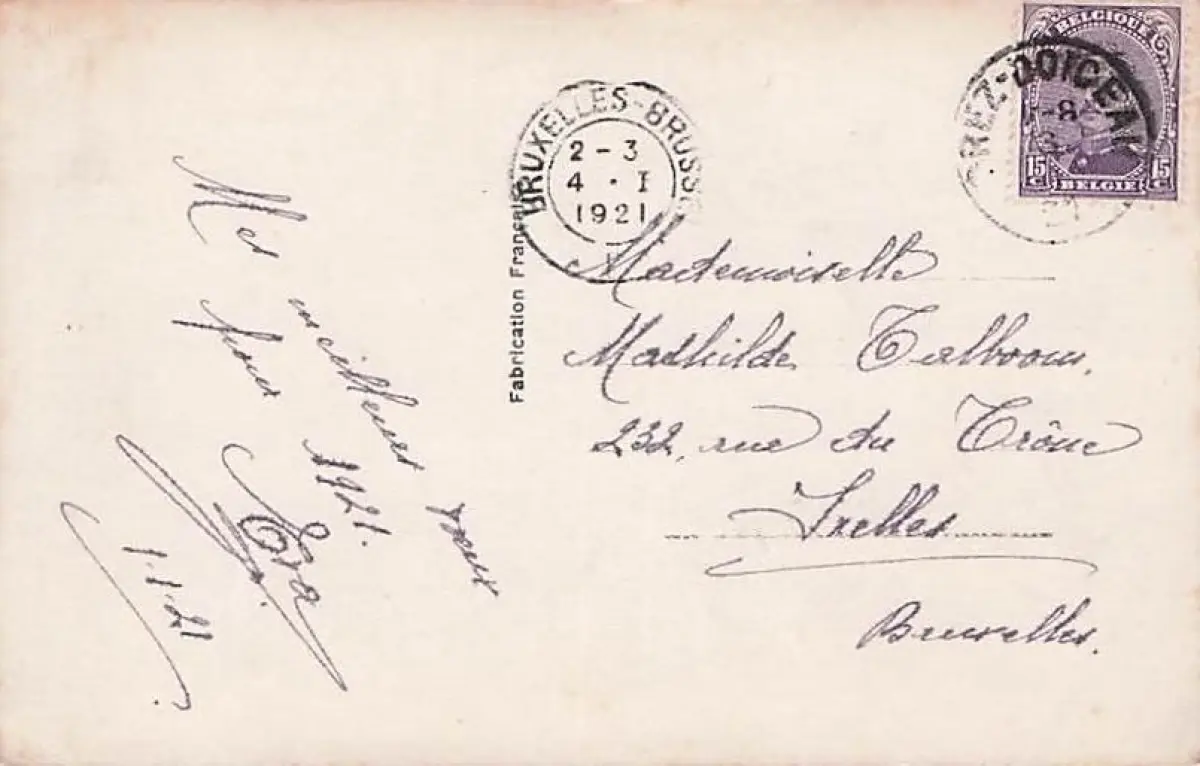 Mes meilleurs vœux
pour 1921.
Eva
1.1.21
Fabrication Française
BRUXELLES-BRUSS
2-3
4·I
1921
REZ-DOICEAU
-8
BELGIQUE
15 C 15 C
BELGIE
Mademoiselle
Mathilde Talboom.
232, rue du Trône
Ixelles
Bruxelles.